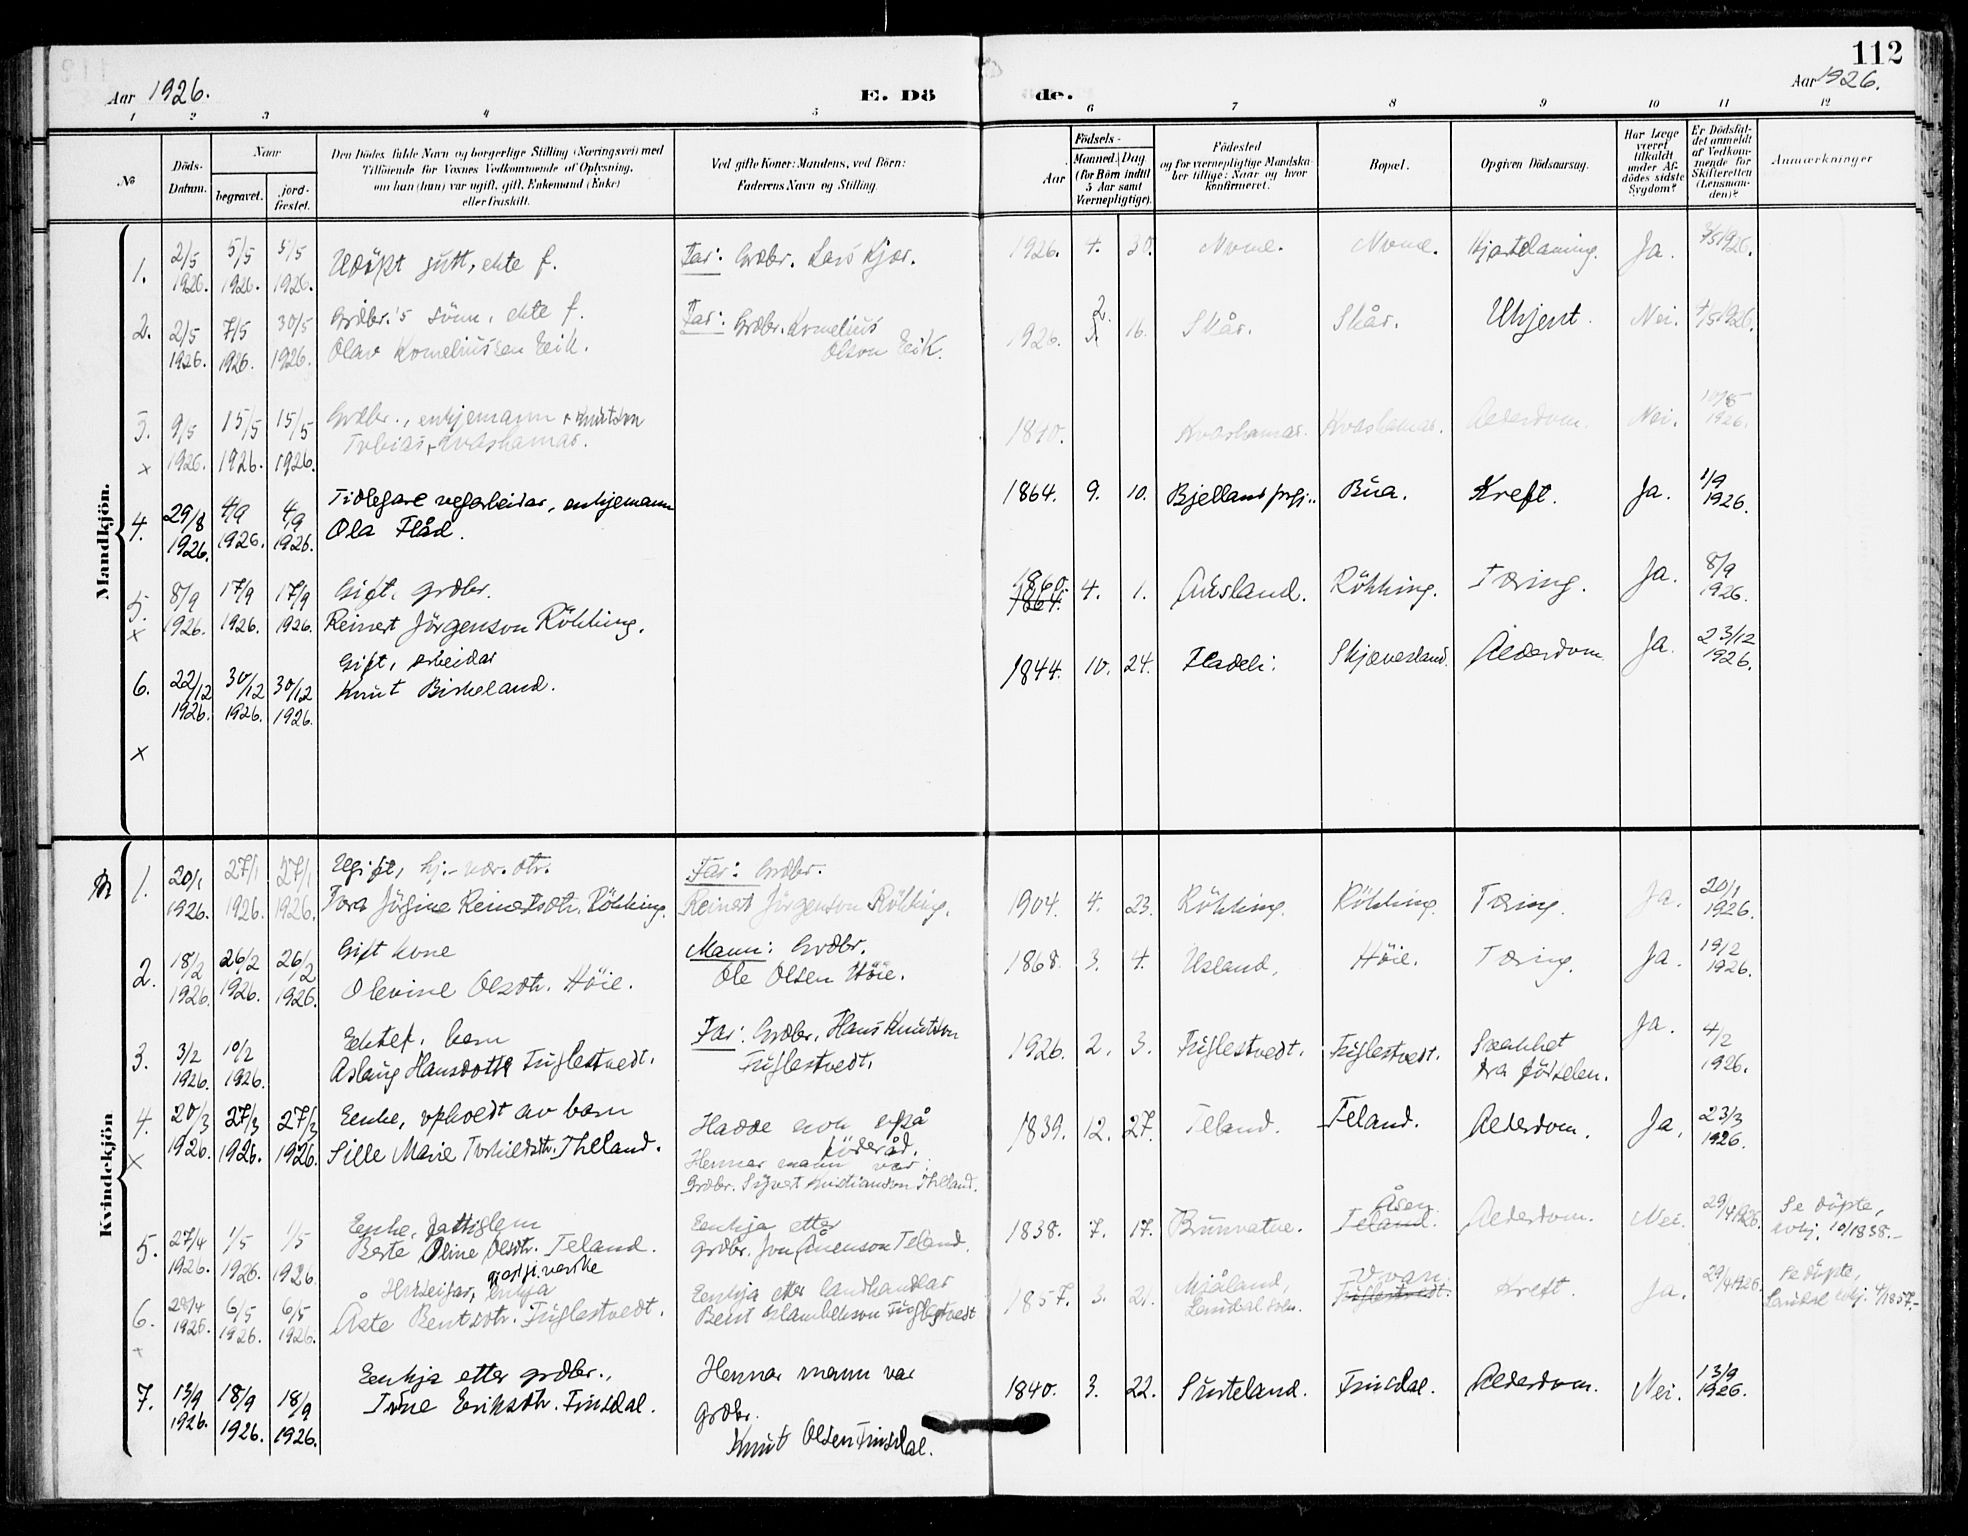 112
Aar 1926.
E. Dö
de.
Aar 1926.
1 2 3 4 5 6 7 8 9 10 11 12
No
Döds-
Datum.
Naar
begravet.
jord-
fæstet.
Den Dödes fulde Navn og borgerlige Stilling (Næringsvei) med
Tilföiende for Voxnes Vedkommende af Oplysning,
om han (hun) var ugift, gift, Enkemand (Enke)
eller fraskilt.
Ved gifte Koner: Mandens, ved Börn:
Faderens Navn og Stilling.
Födsels-
Aar
Maaned.
Dag
(for Börn indtil
5 Aar samt
Værnepligtige).
Födested
og for værnepligtige Mandska-
ber tillige: Naar og hvor
konfirmeret.
Bopæl.
Opgiven Dödsaarsag.
Har Læge
været
tilkaldt
under Af-
dödes sidste
Sygdom?
Er Dödsfal-
det anmeldt
af Vedkom-
mende for
Skifteretten
(Lensman-
den)?
Anmærkninger
Mandkjön.
1. 2/5 1926. 5/5 1926. 5/5 1926. Udöpt gutt, ekte f. Far: Grdbr. Lars Kjær. 1926. 4. 30. Nome. Nome. Hjartelaming. Ja. 3/5 1926.
2. 2/5 1926. 7/5 1926. 30/5 1926. Grdbr.'s sönn, ekte f.
Olav Korneliussen Eeik. Far: Grdbr. Kornelius
Olson Eeik. 1926. 2. 16. Skår. Skår. Ukjent. Nei. 4/5 1926.
3. 9/5 1926. 15/5 1926. 15/5 1926. Grdbr., enkjemann + Knutson
Tobias + Kvåshamar. 1840. Kvåshamar. Kvåshamar. Alderdom. Nei. 10/5 1926.
x
4. 29/8 1926. 4/9 1926. 4/9 1926. Tidlegare vegarbeidar, enkjemann
Ola Flåd. 1864. 9. 10. Bjelland prgj.. Bua. Kreft. Ja. 1/9 1926.
5. 8/9 1926. 17/9 1926. 17/9 1926. Gift, grdbr.
Reinert Jörgenson Rökking. 1860. 1864. 4. 1. Auksland. Rökking. Tæring. Ja. 8/9 1926.
x
6. 22/12 1926. 30/12 1926. 30/12 1926. Gift, arbeidar
Knut Birkeland. 1844. 10. 24. Fladeli. Skjævesland. Alderdom. Ja. 23/12 1926.
x
Kvindekjön
1. 20/1 1926. 27/1 1926. 27/1 1926. Ugift, hj.-vær. dtr.
Tora Jörgine Reinertsdtr. Rökking. Far: Grdbr.
Reinert Jörgenson Rökking. 1904. 4. 23. Rökking. Rökking. Tæring. Ja. 20/1 1926.
2. 18/2 1926. 26/2 1926. 26/2 1926. Gift kone
Olevine Olsdtr. Höie. Mann: Grdbr.
Ole Olsen Höie. 1868. 3. 4. Usland. Höie. Tæring. Ja. 19/2 1926.
3. 3/2 1926. 10/2 1926. Ektef. barn
Aslaug Hansdotter Fuglestvedt. Far: Grdbr. Hans Knutson
Fuglestvedt. 1926. 2. 3. Fuglestvedt. Fuglestvedt. Svakhet
fra födselen. Ja. 4/2 1926.
4. 20/3 1926. 27/3 1926. 27/3 1926. Eenke, upholdt av barn
Sille Marie Torkildsdtr. Theland. Hadde nok også
föderåd.
Hennar mann var:
Grdbr. Sigvert Kristianson Theland. 1839. 12. 27. Teland. Teland. Alderdom. Ja. 23/3 1926.
x
5. 27/4 1926. 1/5 1926. 1/5 1926. Eenke, fattiglem
Berte Oline Olsdtr. Teland. Eenkja etter
grdbr. Jon Ånenson Teland. 1838. 7. 17. Brunvatne. Åsen Teland. Alderdom. Nei. 29/4 1926. Se döpte,
10/1838.-
6. 28/4 1926. 6/5 1926. 6/5 1926. Huseigar, enkja
Åste Bentsdtr. Fuglestvedt. Eenkja etter landhandlar
Bent Fuglestvedt 1857. 3. 21. Mjåland,
Laudal sokn. Vivan Fuglestvedt. Kreft. Ja. 29/4 1926. Se döpte,
Laudal 4/1857.-
7. 13/9 1926. 18/9 1926. 18/9 1926. Eenkja etter grdbr.,
Tone Eriksdtr. Finsdal. Hennar mann var
grdbr.
Knut Olsen Finsdal. 1840. 3. 22. Surteland. Finsdal. Alderdom. Nei. 13/9 1926.